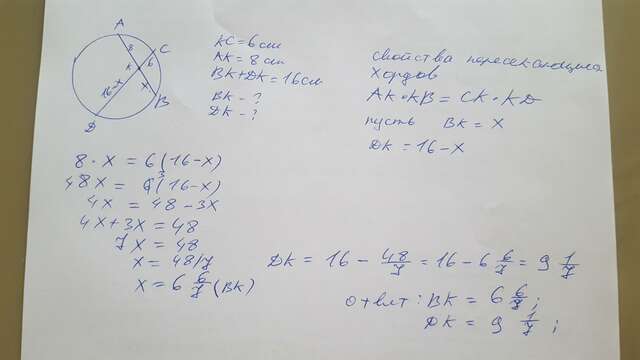 A
8
C
6
K
16-x
x
B
D
KC = 6 cm
AK = 8 cm
BK + DK = 16 см
BK - ?
DK - ?
свойства пересекающихся
хордов
AK • KB = CK • KD
пусть BK = X
DK = 16 - X
8 · X = 6 (16 - X)
4 8X = 6 3 (16 - X)
4X = 48 - 3X
4X + 3X = 48
7X = 48
X = 48/7
X = 6 6/7 (BK)
DK = 16 - 48/7 = 16 - 6 6/7 = 9 1/7
ответ: BK = 6 6/7;
DK = 9 1/7;